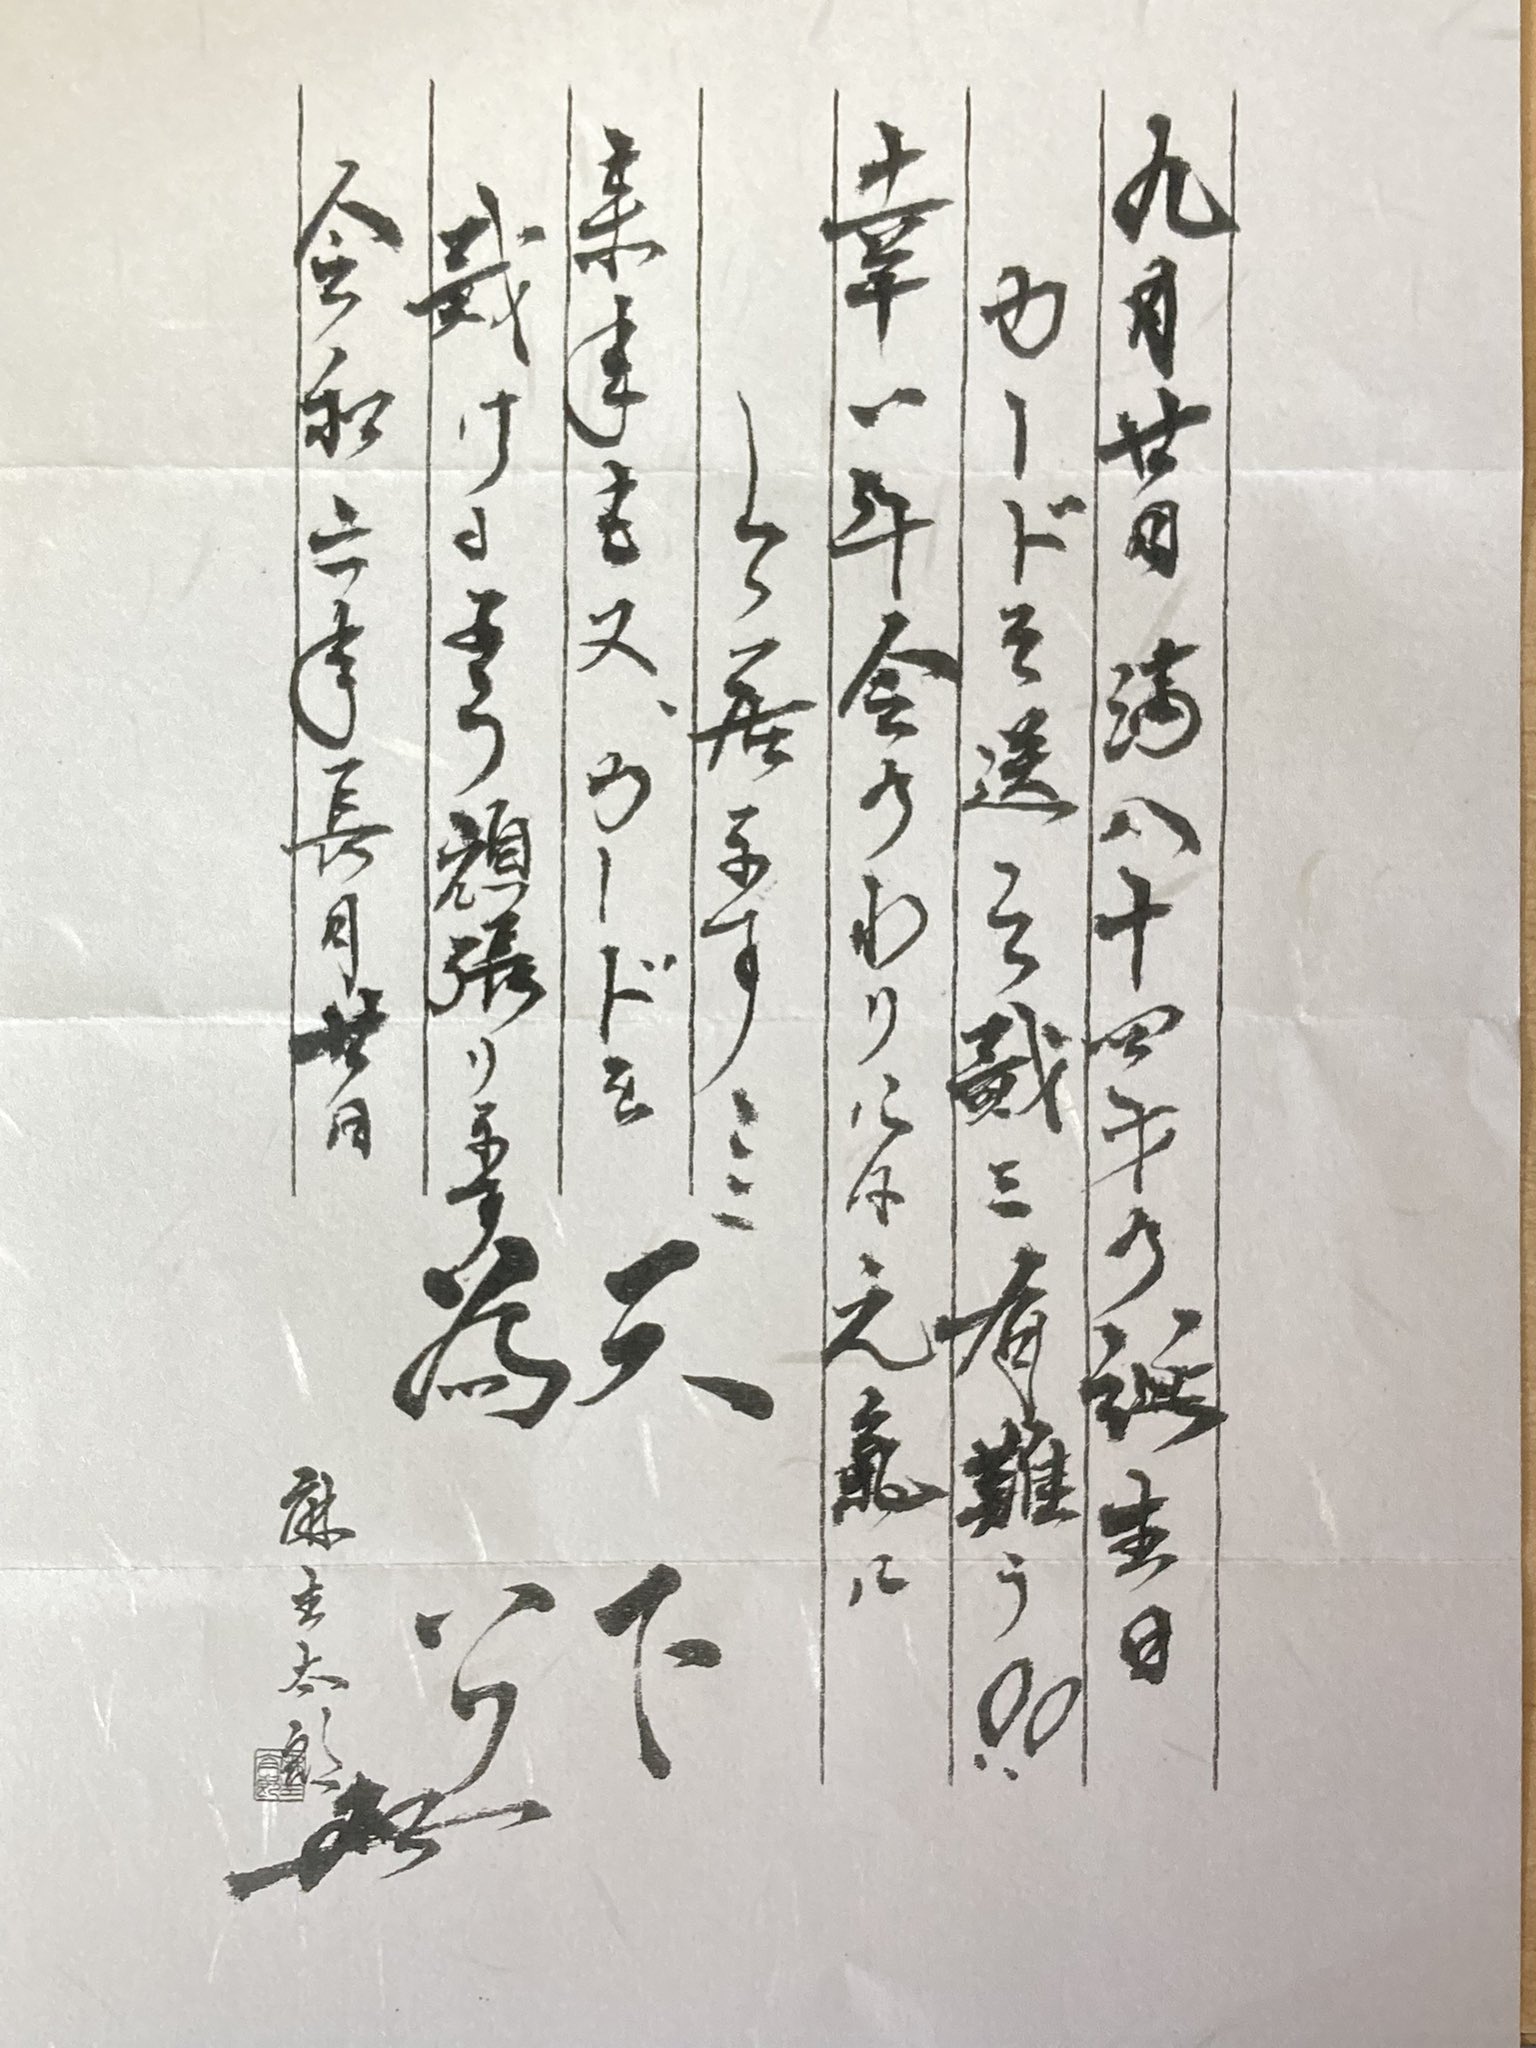 九月廿日満八十四才の誕生日
カードを送って戴き有難う!!
幸い年令のわりには元氣に
して居ります
来年も又、カードを
戴けるよう頑張ります
令和六年長月廿日
天下
為公
麻生太郎